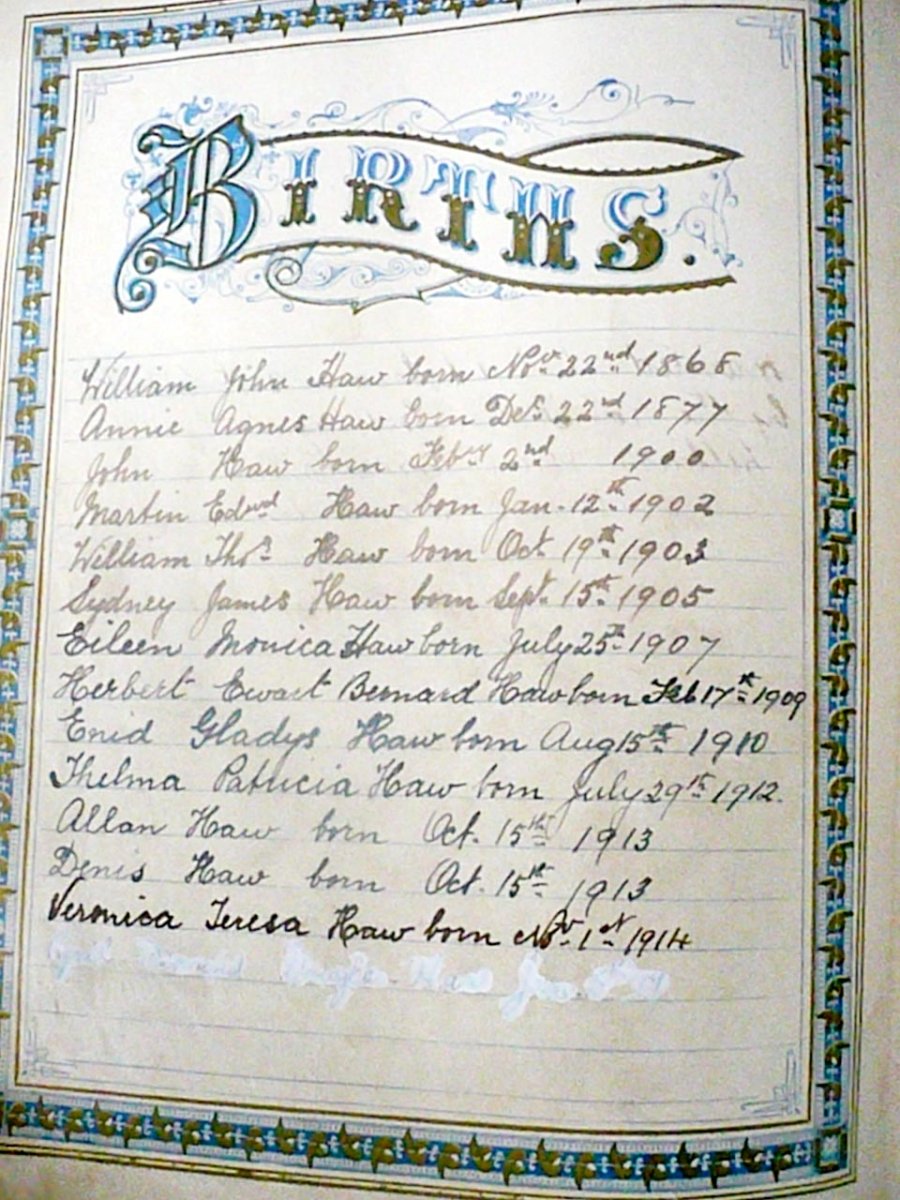 BIRTHS.
William John Haw born Nov. 22nd 1868
Annie Agnes Haw born Dec. 22nd 1877
John Haw born Febry 2nd 1900
Martin Edwd Haw born Jan. 12th 1902
William Thos Haw born Oct 19th 1903
Sydney James Haw born Sept. 15th 1905
Eileen Monica Haw born July 25th 1907
Herbert Ewart Bernard Haw born Feb 17th 1909
Enid Gladys Haw born Aug 15th 1910
Thelma Patricia Haw born July 29th 1912.
Allan Haw born Oct. 15th 1913
Denis Haw born Oct. 15th 1913
Veronica Teresa Haw born Nov. 1st 1914